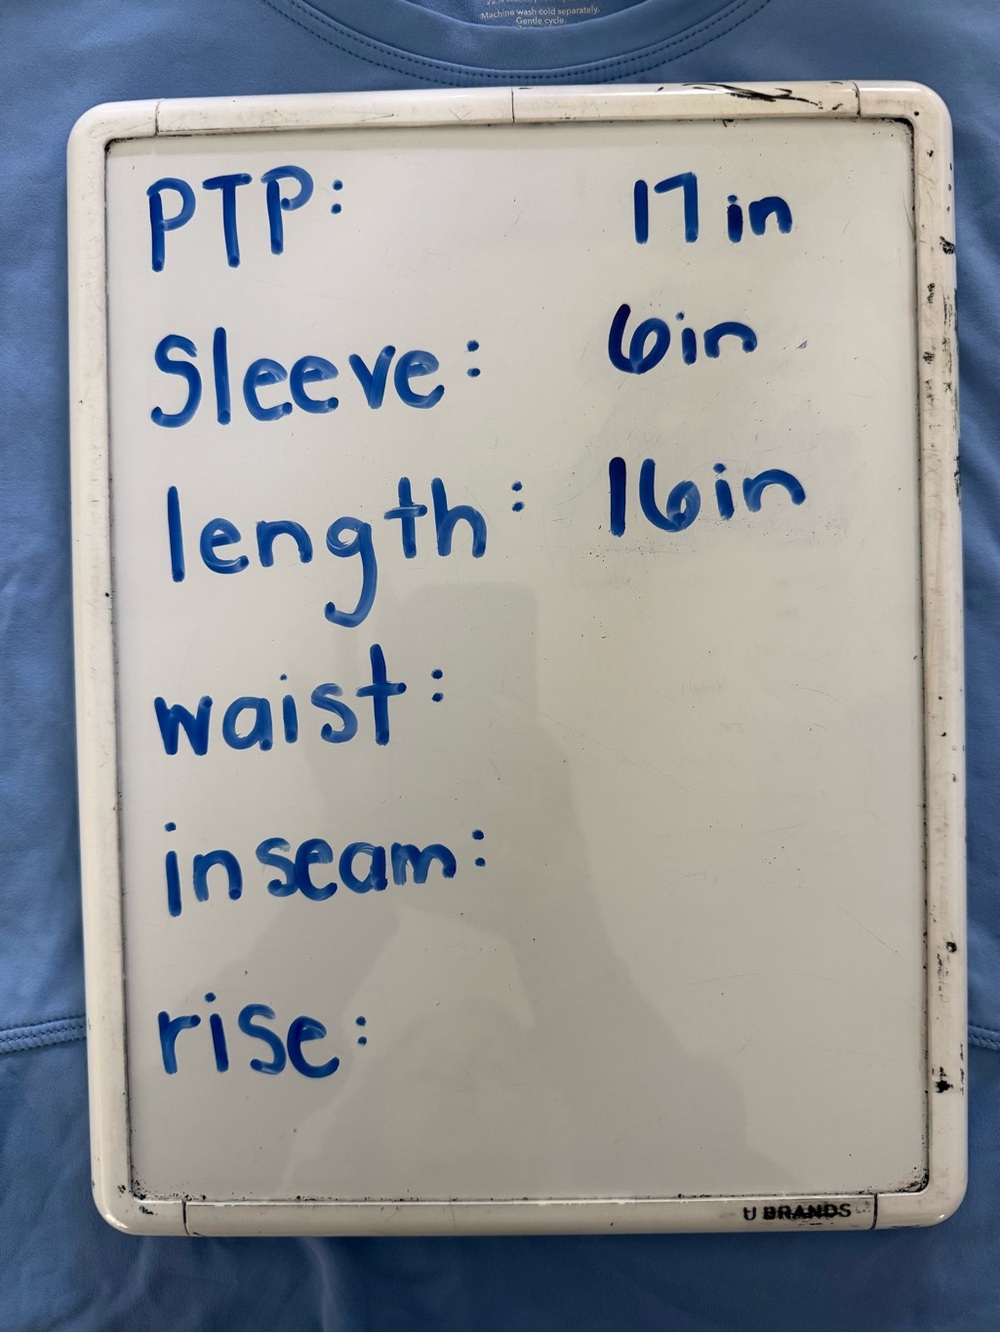 Machine wash cold separately.
Gentle cycle.
PTP: 17 in
Sleeve: 6in
length: 16in
waist:
inseam:
rise:
U BRANDS